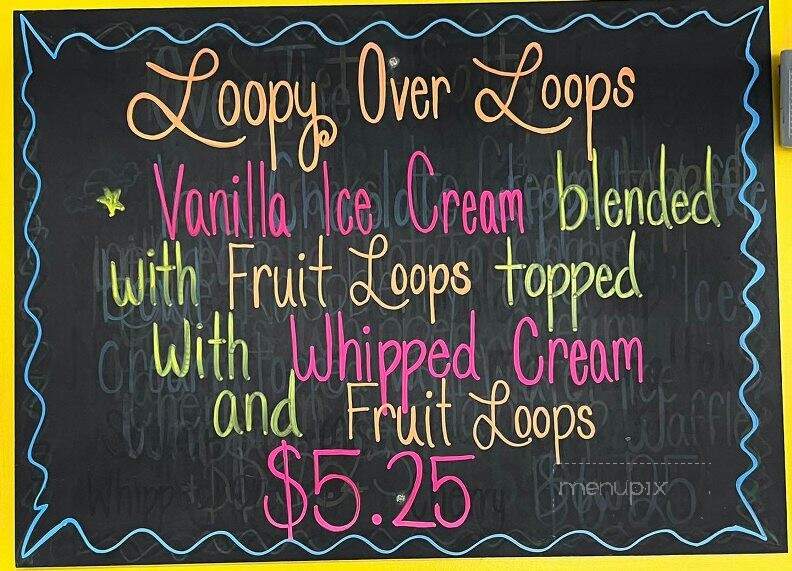 Loopy Over Loops
Vanilla Ice Cream blended
with Fruit Loops topped
With Whipped Cream
and Fruit Loops
$5.25
menupix